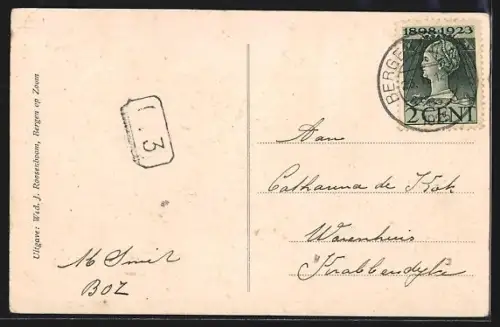 1898 1923
BERGE
2 CENT
Uitgave: Wed. J. Roesenboom, Bergen op Zoom
3
Aan
Catharina de Kok
Warenhuis
Krabbendijke
M Smit
BOZ